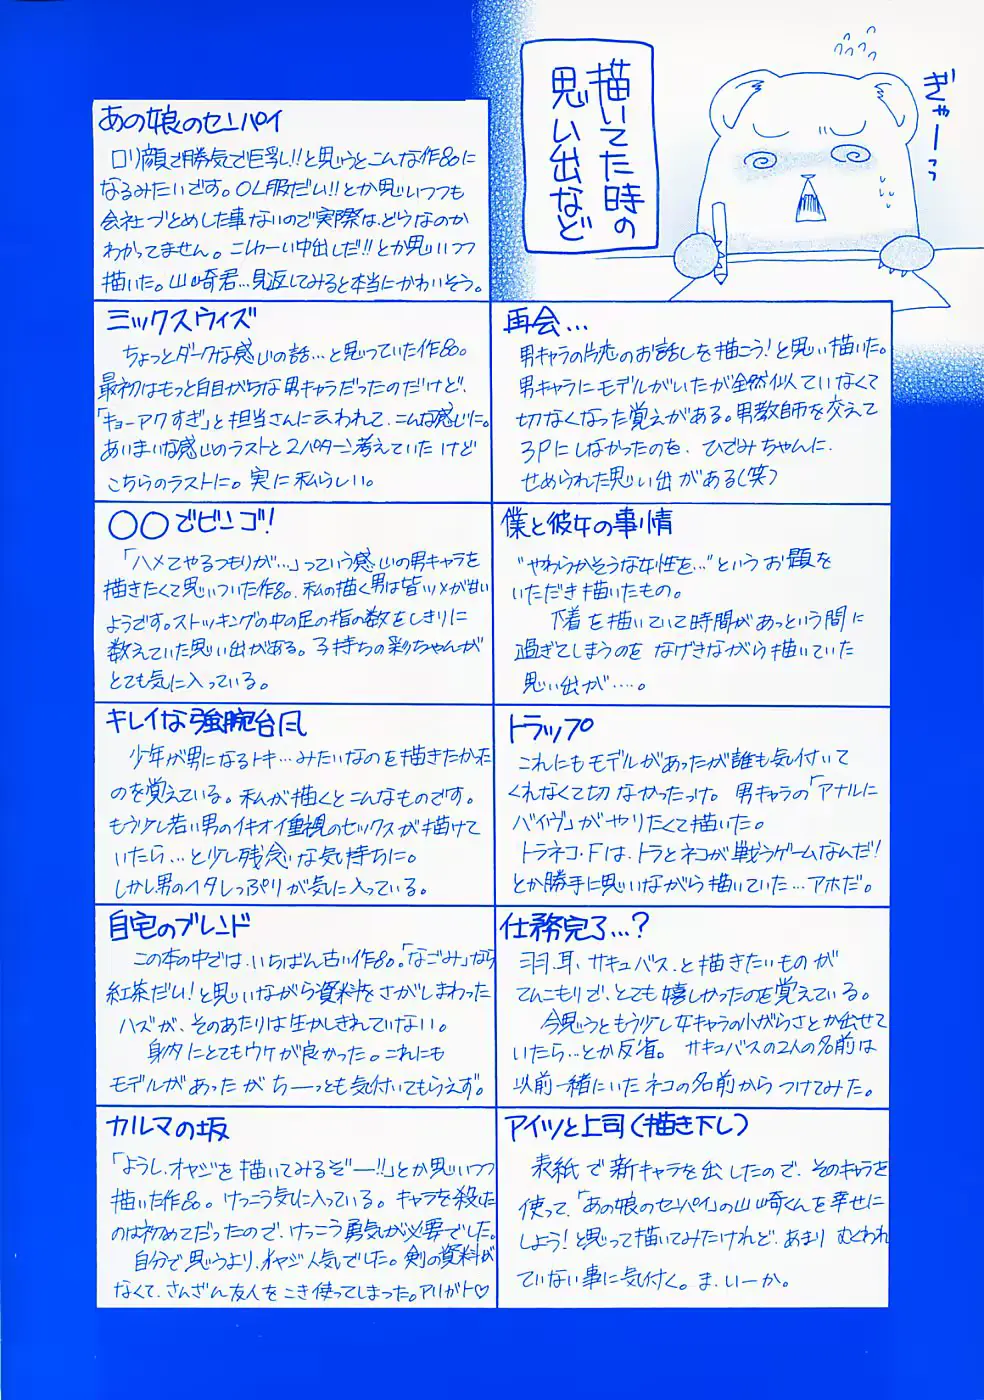 描いてた時の
思い出など
ぎゃーっっ
あの娘のセンパイ
ロリ顔で勝気で巨乳!!と思うとこんな作品に
なるみたいです。OL服だい!!とか思いつつも
会社づとめした事ないので実際は、どうなのか
わかってません。こしかーい中出しだ!!とか思いつつ
描いた。山崎君…見返してみると本当にかわいそう。
ミックスウィズ
ちょっとダークな感じの話…と思っていた作品。
最初はもっと自目がちな男キャラだったのだけど、
「キョーアクすぎ」と担当さんに云われて、こんな感じに。
あいまいな感じのラストと2パターン考えていたけど
こちらのラストに。実に私らしい。
再会…
男キャラの片恋のお話しを描こう!と思い描いた。
男キャラにモデルがいたが全然似ていなくて
切なくなった覚えがある。男教師を交えて
3Pにしなかったのを、ひでみちゃんに、
せめられた思い出がある(笑)
○○でビンゴ!
「ハメてやるつもりが…」っていう感じの男キャラを
描きたくて思いついた作品。私の描く男は皆ツメが甘い
ようです。ストッキングの中の足の指の数をしきりに
数えていた思い出がある。子持ちの彩ちゃんが
とても気に入っている。
僕と彼女の事情
"やわらかそうな女性を…"というお題を
いただき描いたもの。
下着を描いていて時間があっという間に
過ぎてしまうのをなげきながら描いていた
思い出が….。
キレイな強腕台風
少年が男になるトキ…みたいなのを描きたかった
のを覚えている。私が描くとこんなものです。
もう少し若い男のイキオイ重視のセックスが描けて
いたら…と少し残念な気持ちに。
しかし男のイタしっぷりが気に入っている。
トラップ
これにもモデルがあったが誰も気付いて
くれなくて切なかったっけ。男キャラの「アナルに
バイヴ」がやりたくて描いた。
トラネコ・Fは、トラとネコが戦うゲームなんだ!
とか勝手に思いながら描いていた…アホだ。
自宅のブレンド
この本の中では、いちばん古い作品。「なごみ」なら
紅茶だい!と思いながら資料をさがしまわった
ハズが、そのあたりは生かしきれていない。
身内にとてもウケが良かった。これにも
モデルがあったがちーっとも気付いてもらえず。
仕務完了…?
羽、耳、サキュバス、と描きたいものが
てんこもりで、とても嬉しかったのを覚えている。
今思うともう少し女キャラの小がらさとか出せて
いたら…とか反省。サキュバスの2人の名前は
以前一緒にいたネコの名前からつけてみた。
カルマの坂
「ようし、オヤジを描いてみるぞー!!」とか思いつつ
描いた作品。けっこう気に入っている。キャラを殺した
のは初めてだったので、けっこう勇気が必要でした。
自分で思うより、オヤジ人気でした。剣の資料が
なくて、さんざん友人をこき使ってしまった。アリガト♡
アイツと上司(描き下し)
表紙で新キャラを出したので、そのキャラを
使って、「あの娘のセンパイ」の山崎くんを幸せに
しよう!と思って描いてみたけれど、あまりむくわれ
ていない事に気付く。ま、いーか。